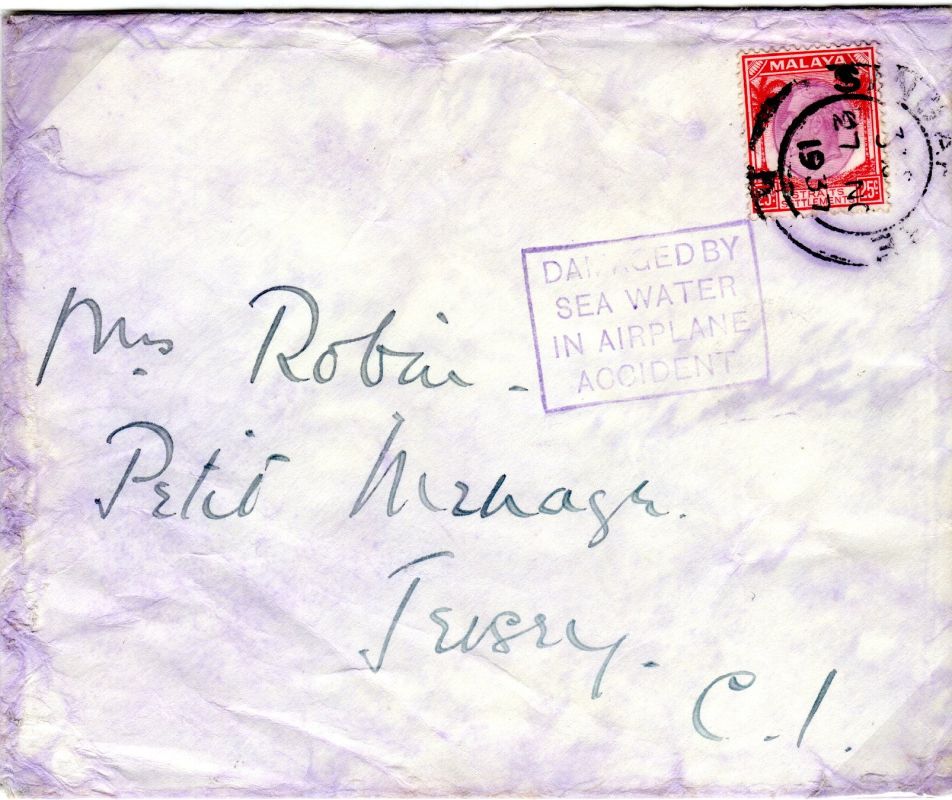 MALAYA
25c
25c
STRAITS
SETTLEMENTS
27 NO
1937
DAMAGED BY
SEA WATER
IN AIRPLANE
ACCIDENT
Mrs Robin -
Petit Menage.
Jersey.
C.I.